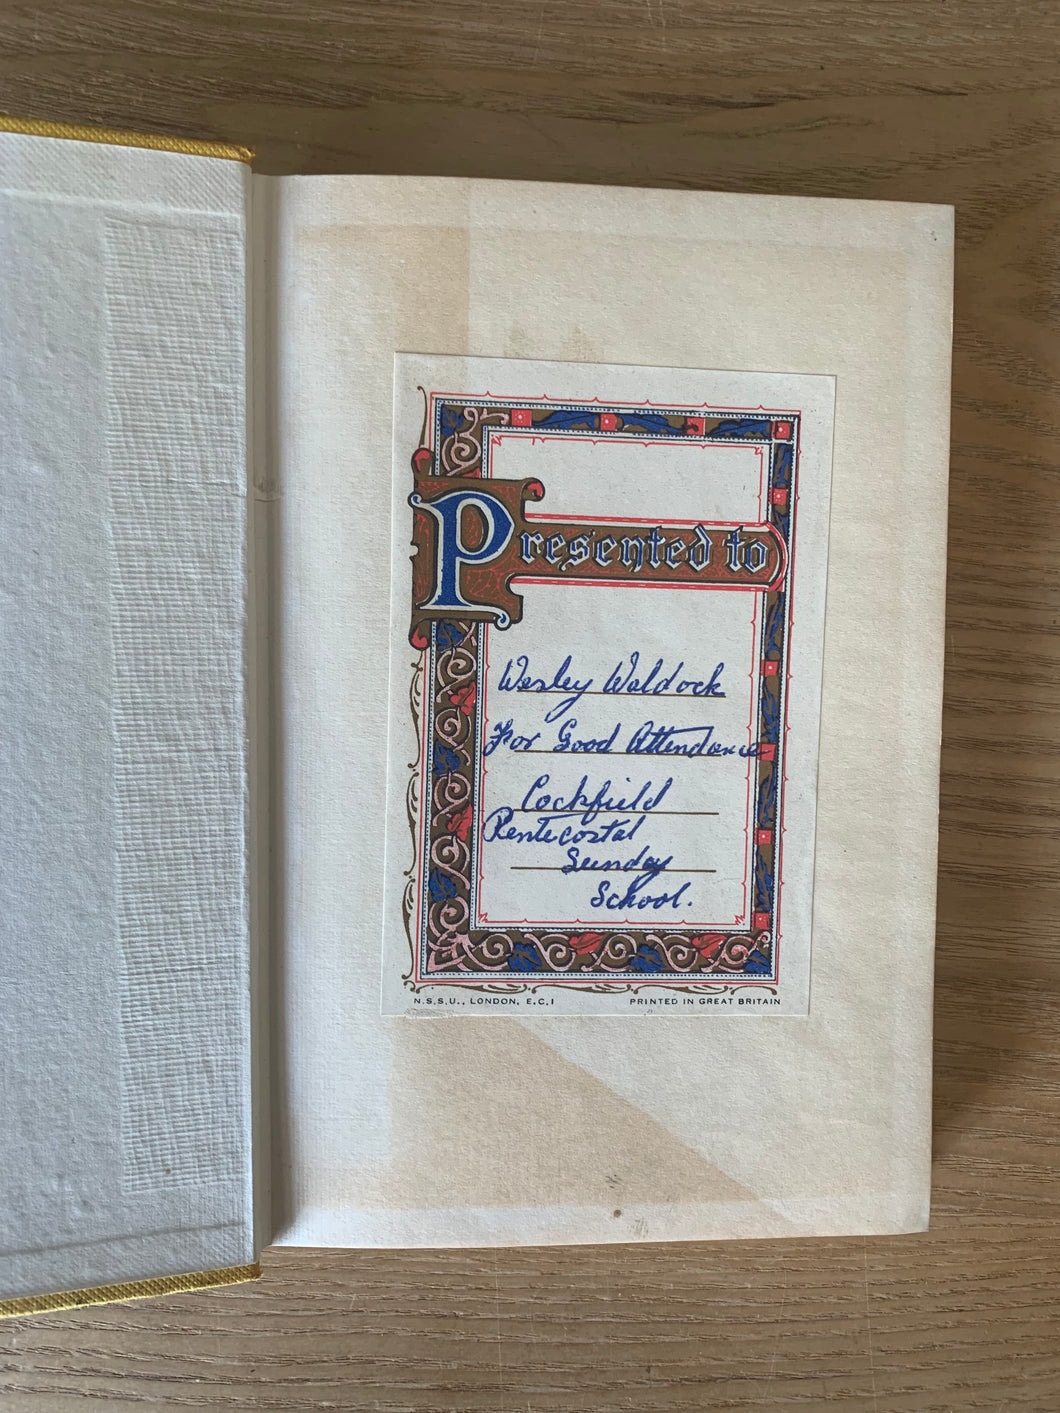 Presented to
Wesley Waldock
For Good Attendance
Cockfield
Pentecostal
Sunday
School.
N.S.S.U., LONDON, E.C.1 PRINTED IN GREAT BRITAIN